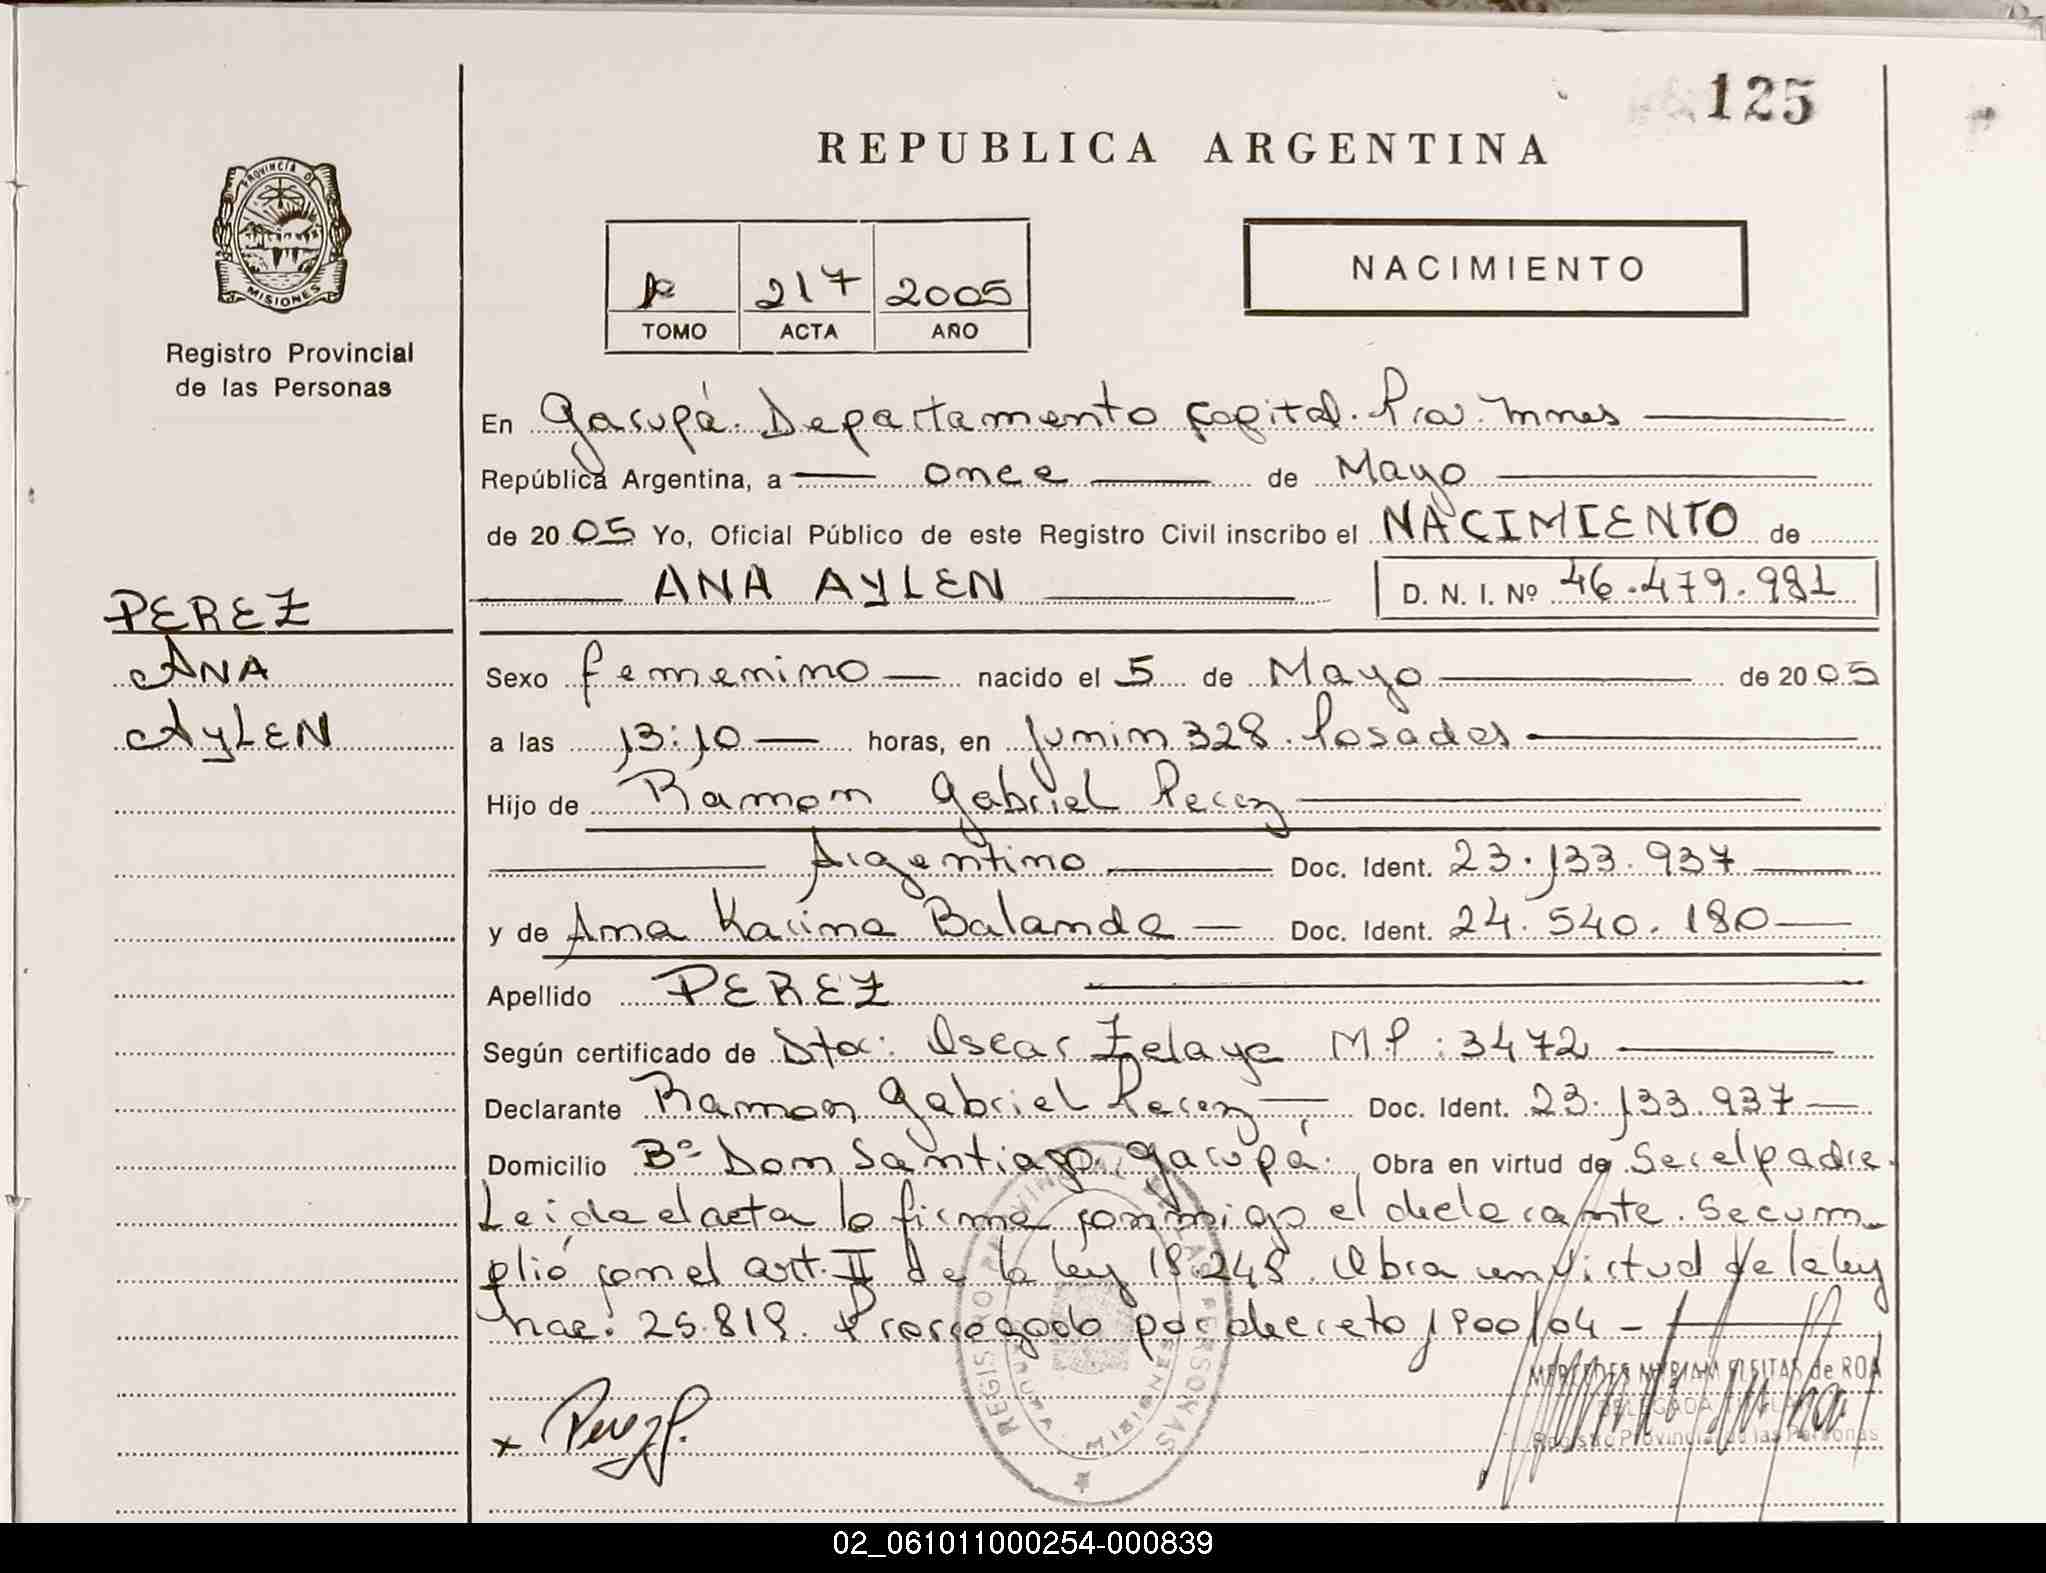 125
REPUBLICA ARGENTINA
PROVINCIA DE
MISIONES
Registro Provincial
de las Personas
217 2005
TOMO ACTA AÑO
NACIMIENTO
En Garupá. Departamento Capital. Prov. Mnes
República Argentina, a once de Mayo
de 2005 Yo, Oficial Público de este Registro Civil inscribo el NACIMIENTO de
ANA AYLEN D. N. I. Nº 46.479.981
PEREZ
ANA
AYLEN
Sexo femenino nacido el 5 de Mayo de 2005
a las 13:10 horas, en Junin 328. Posadas
Hijo de Ramon Gabriel Perez
Argentino Doc. Ident. 23.133.937
y de Ana Karina Balanda Doc. Ident. 24.540.180
Apellido PEREZ
Según certificado de Oscar Zelaya MP: 3472
Declarante Ramon Gabriel Perez Doc. Ident. 23.133.937
Domicilio Bº Don Santiago. Garupá. Obra en virtud de Ser el padre.
Leida el acta la firma conmigo el declarante. Se cum-
plió con el art. II de la ley 18.248. Obra en virtud de la ley
nac. 25.819. Prorrogado por decreto 1900/04 -
REGISTRO PROVINCIAL DE LAS PERSONAS
MISIONES
MERCEDES MYRIAM FLEITAS de ROA
DELEGADA TITULAR
Registro Provincial de las Personas
x Perez
02_061011000254-000839